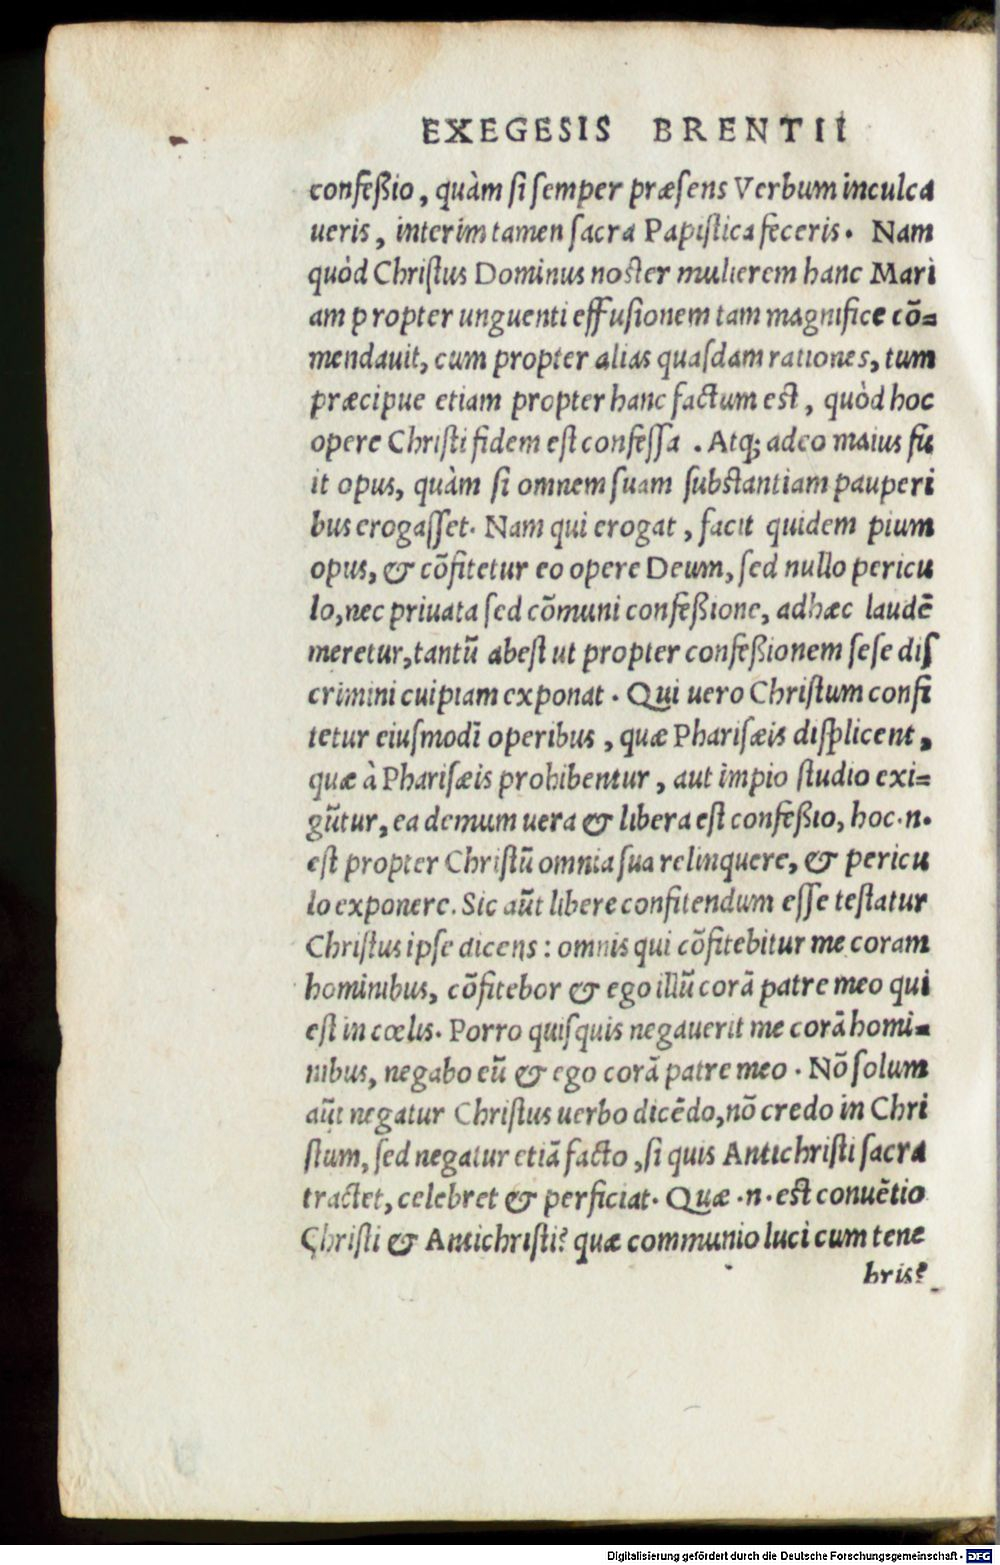 EXEGESIS BRENTII
confeßio, quàm ſi ſemper præſens Verbum inculca
ueris, interim tamen ſacra Papiſtica feceris. Nam
quòd Chriſtus Dominus noſter mulierem hanc Mari
am propter unguenti effuſionem tam magnifice cõ=
mendauit, cum propter alias quaſdam rationes, tum
præcipue etiam propter hanc factum eſt, quòd hoc
opere Chriſti fidem eſt confeſſa . Atq; adeo maius fu
it opus, quàm ſi omnem ſuam ſubſtantiam pauperi
bus erogaſſet. Nam qui erogat, facit quidem pium
opus, & cõfitetur eo opere Deum, ſed nullo pericu
lo, nec priuata ſed cõmuni confeßione, adhæc laudẽ
meretur, tantũ abeſt ut propter confeßionem ſeſe diſ
crimini cuipiam exponat. Qui uero Chriſtum confi
tetur eiuſmodi operibus, quæ Phariſæis diſplicent,
quæ à Phariſæis prohibentur, aut impio ſtudio exi=
gũtur, ea demum uera & libera eſt confeßio, hoc.n.
eſt propter Chriſtũ omnia ſua relinquere, & pericu
lo exponere. Sic aũt libere confitendum eſſe teſtatur
Chriſtus ipſe dicens: omnis qui cõfitebitur me coram
hominibus, cõfitebor & ego illũ corã patre meo qui
eſt in cœlis. Porro quiſquis negauerit me corã homi=
nibus, negabo eũ & ego corã patre meo . Nõ ſolum
aũt negatur Chriſtus uerbo dicẽdo, nõ credo in Chri
ſtum, ſed negatur etiã facto, ſi quis Antichriſti ſacra
tractet, celebret & perficiat. Quæ .n. eſt conuẽtio
Chriſti & Antichriſti? quæ communio luci cum tene
bris?
Digitalisierung gefördert durch die Deutsche Forschungsgemeinschaft - DFG